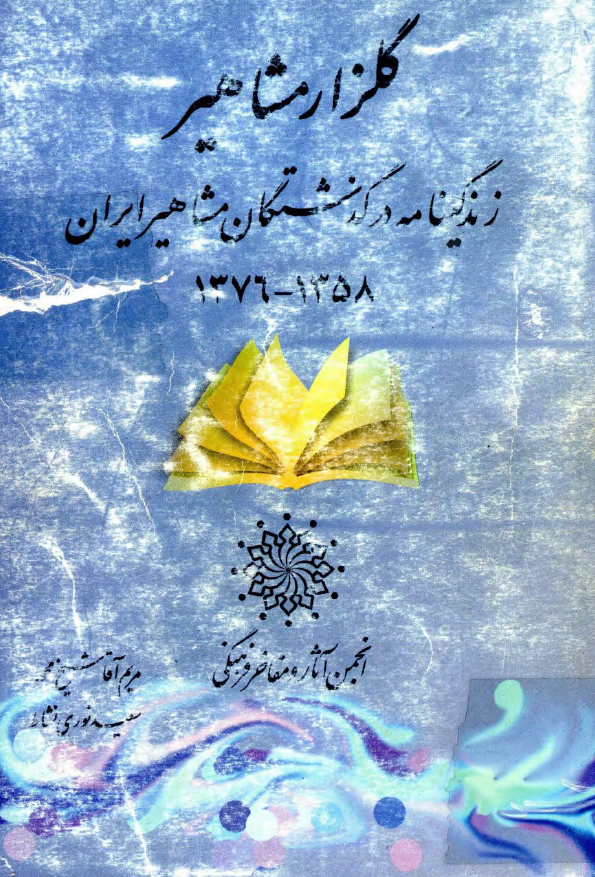 گلزار مشاهیر
زندگینامه درگذشتگان مشاهیر ایران
۱۳۵۸-۱۳۷۶
انجمن آثار و مفاخر فرهنگی
مریم آقا شیخ محمد
سعید نوری نشاط